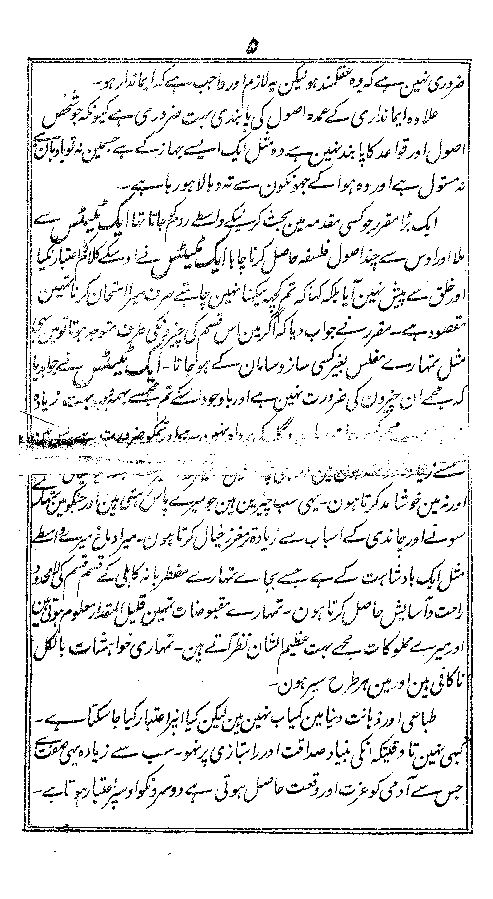 ۵
ضروری نہین ہے کہ وہ عقلمند ہو لیکن یہ لازم اور واجب ہے کہ ایماندار ہو۔
علاوہ ایمانداری کے عمدہ اصول کی پابندی بہت ضروری ہے کیونکہ جو شخص
اصول اور قواعد کا پابند نہین ہے وہ مثل ایک ایسے جہاز کے ہے جسمین نہ تو بادبان ہے
نہ مستول ہے اور وہ ہوا کے جھونکون سے تہ و بالا ہو رہا ہے۔
ایک بڑا مقرر جو کسی مقدمہ مین بحث کرنیکے واسطے روم جاتا تھا ایک ٹیٹس سے
ملا اور اوس سے چند اصول فلسفہ حاصل کرنا چاہا ایک ٹیٹس نے اوسکے کلام کا اعتبار نکیا
اور خلق سے پیش نہین آیا بلکہ کہا کہ تم کچھ سیکھنا نہین چاہتے صرف میرا امتحان کرنا تمہین
مقصود ہے۔ مقرر نے جواب دیا کہ اگر مین اس قسم کی چیزونکی طرف متوجہ ہوتا تو مین بھی
مثل تمہارے مفلس بغیر کسی ساز و سامان کے ہو جاتا۔ ایک ٹیٹس نے جواب دیا
کہ مجھے ان چیزون کی ضرورت نہین ہے اور باوجود اسکے تم مجھسے بہت زیادہ
اور نہ مین خوشامد کرتا ہون۔ یہی سب چیزین ہین جو میرے پاس رہتی ہین اور جنکو مین تمہارے
سونے اور چاندی کے اسباب سے زیادہ مرغز خیال کرتا ہون۔ میرا دماغ میرے واسطے
مثل ایک بادشاہت کے ہے جسے بجائے تمہارے مضطربانہ کاہلی کے قسم قسم کی محدود
راحت و آسایش حاصل کرتا ہون۔ تمہارے مقبوضات تمہین قلیل المقدار معلوم ہوتے ہین
اور میرے مملوکات مجھے بہت عظیم الشان نظر آتے ہین۔ تمہاری خواہشات بالکل
ناکافی ہین اور مین ہر طرح سیر ہون۔
طباعی اور ذہانت دنیا مین کمیاب نہین ہین لیکن کیا انپر اعتبار کیا جا سکتا ہے۔
کبھی نہین تا وقتیکہ انکی بنیاد صداقت اور راستبازی پر نہو۔ سب سے زیادہ یہی صفت ہے
جس سے آدمی کو عزت اور وقعت حاصل ہوتی ہے دوسرونکو اوسپر اعتبار ہوتا ہے۔